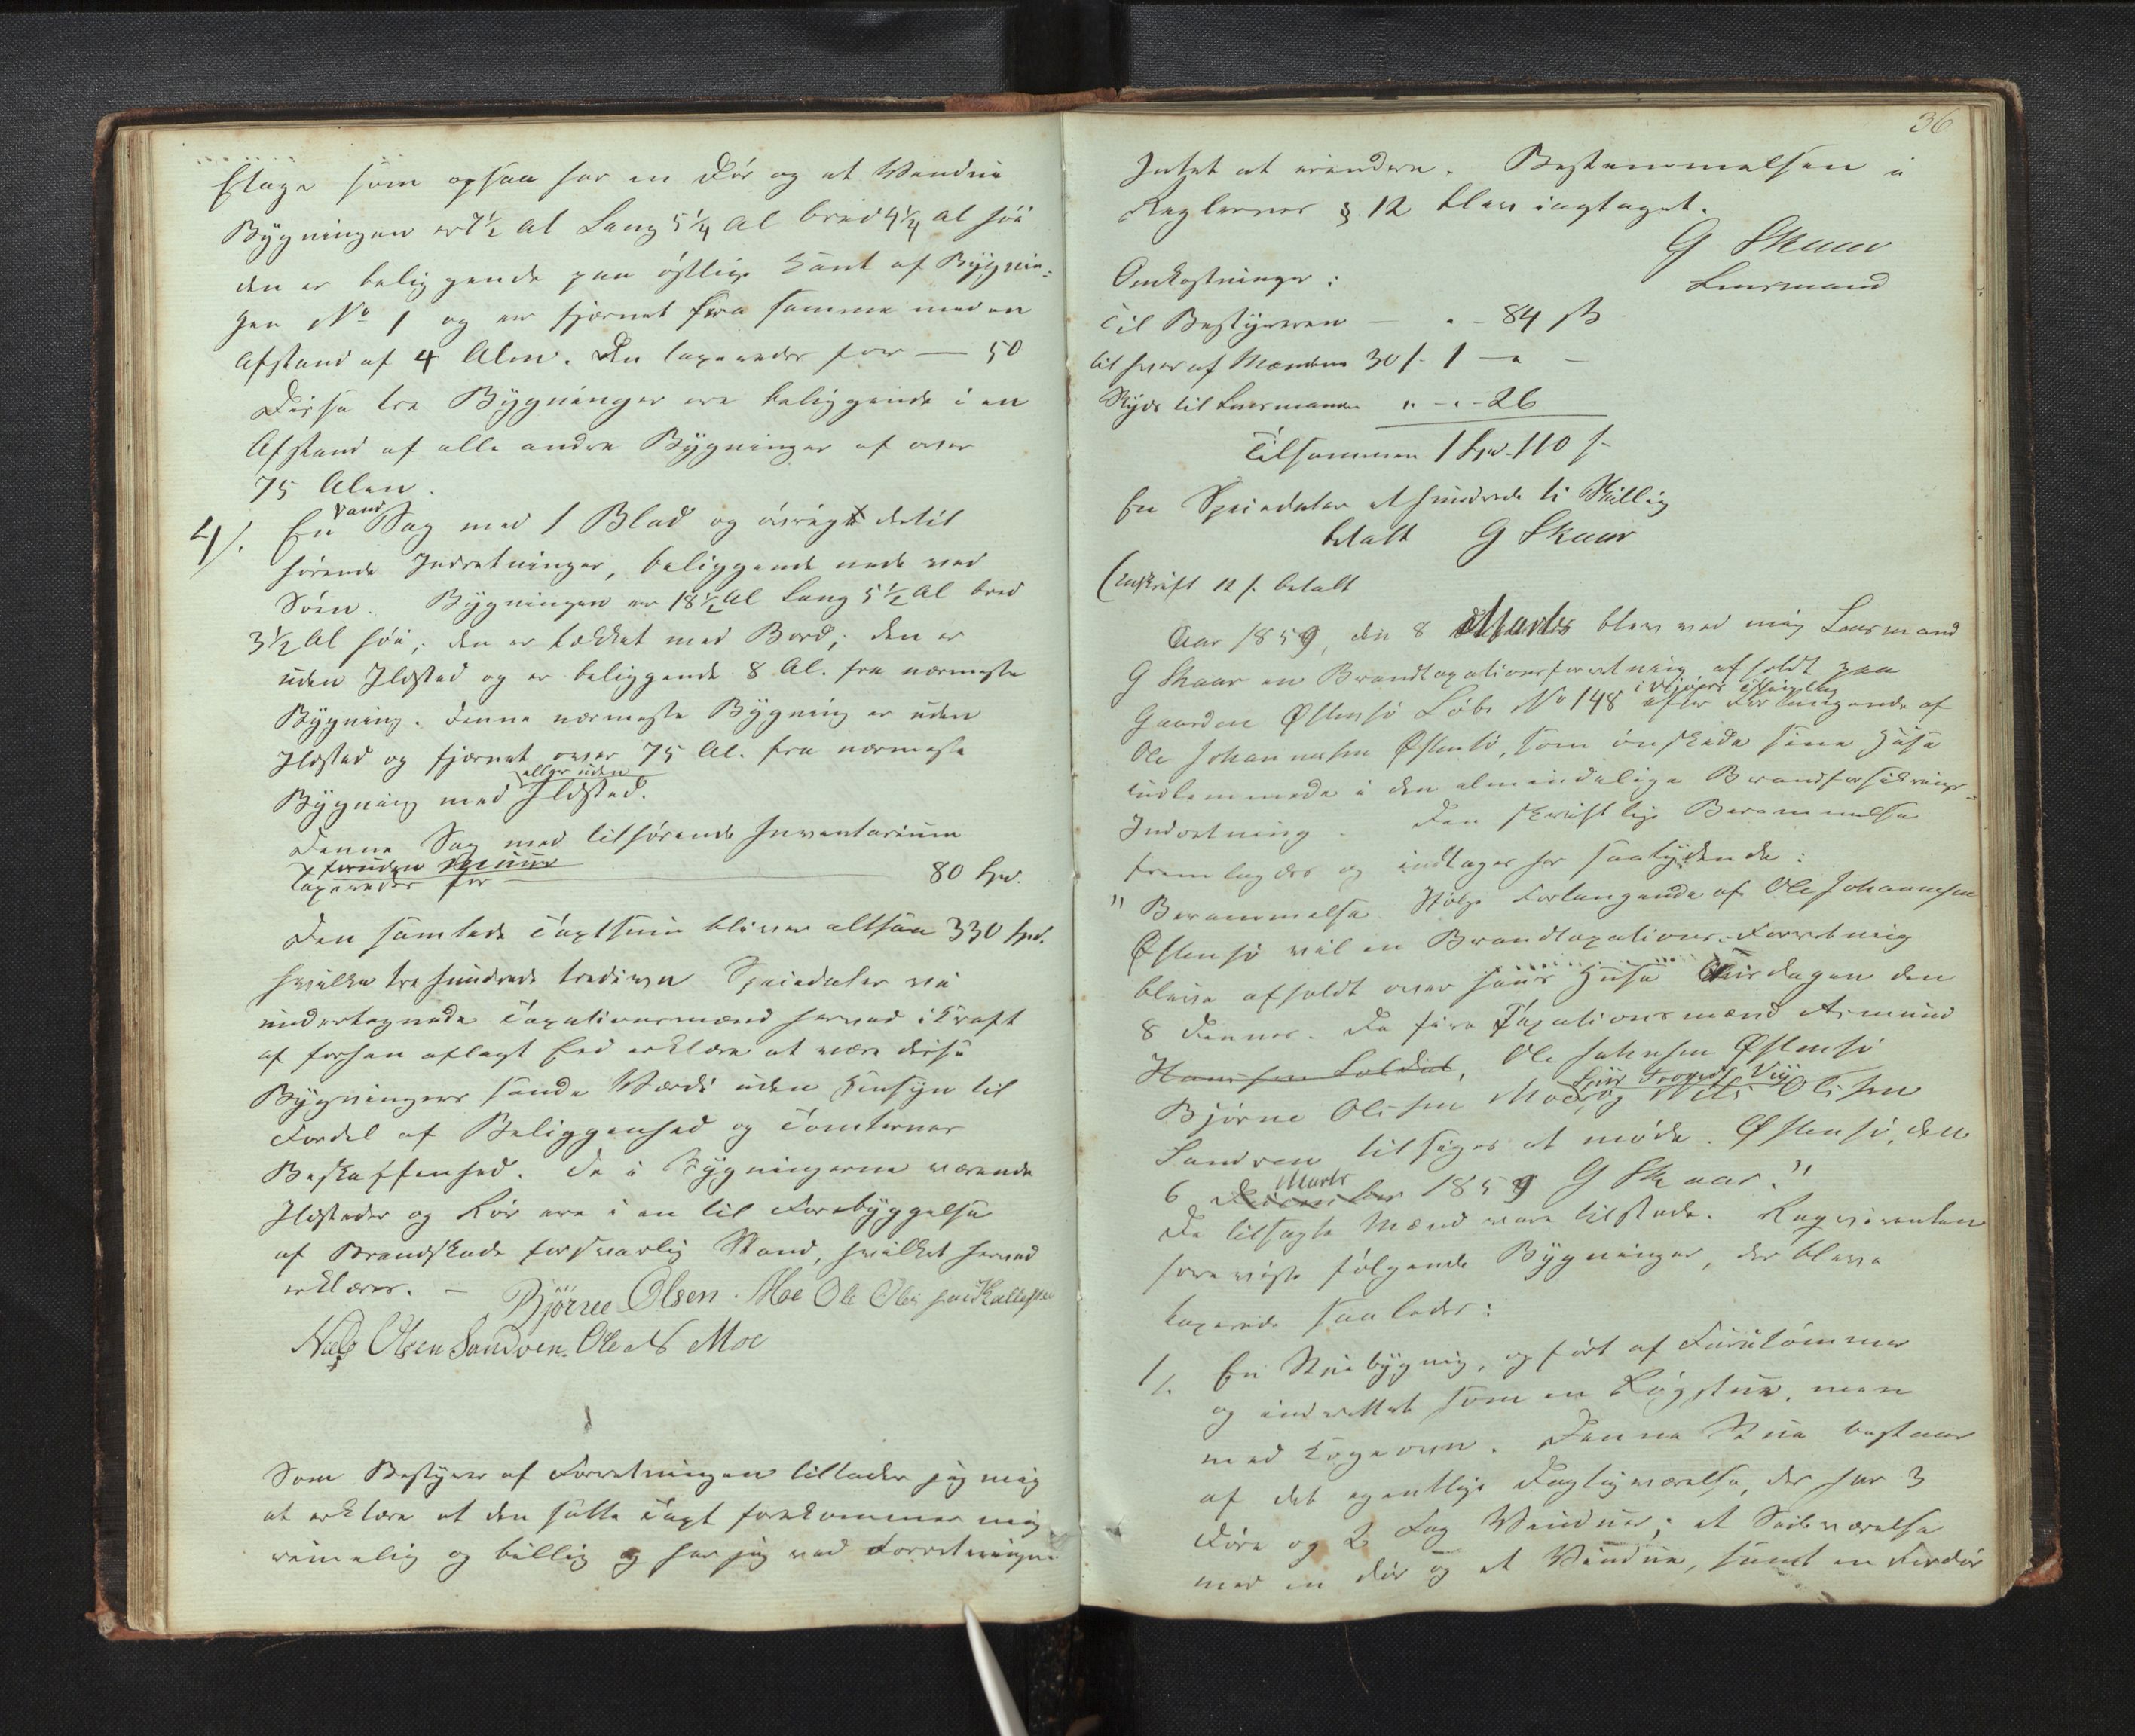 Etage som ogsaa har en Dör og et Vindue
Bygningen er 7 1/2 Al Lang 5 1/4 Al bred 4 1/4 Al höi
den er beliggende paa östlige Kant af Bygnin-
gen No 1 og er fjernet fra samme med en
Afstand af 4 Alen. Den taxeredes for — 50
Disse tre Bygninger ere beliggende i en
Afstand af alle andre Bygninger af over
75 Alen.
4/. En Vand Sag med 1 Blad og övrigt dertil
hörende Indretninger, beliggende nede ved
Söen. Bygningen er 18 1/2 Al Lang 5 1/2 Al bred
3 1/2 Al höi; den er tækket med Bord; den er
uden Ildsted og er beliggende 8 Al. fra nærmeste
Bygning. Denne nærmeste Bygning er uden
Ildsted og fjernet over 75 Al. fra nærmeste
Bygning med eller uden Ildsted.
Denne Sag med tilhörende Inventarium
foruden Muur
taxeredes for — 80 Spd.
Den samlede Taxtsum bliver altsaa 330 Spd.
hvilke tre hundrede tredive Speciedaler vi
undertegnede Taxationsmænd herved i Kraft
af forhen aflagt Eed erklære at være disse
Bygningers sande Værdi uden Hensyn til
Fordel af Beliggenhed og Tomternes
Beskaffenhed. De i Bygningerne værende
Ildsteder og Rör ere i en til Forebyggelse
af Brandskade forsvarlig Stand, hvilket herved
erklæres. — Björne Olsen Moe Ole Olsen
Niels Olsen Sandven. Ole N Moe
Som Bestyrer af Forretningen tillader jeg mig
at erklære at den satte Taxt forekommer mig
rimelig og billig og har jeg ved Forretningen
36
Intet at erindre. Bestemmelsen i
Reglernes § 12 blev iagtaget.
G Skaar
Lensmand
Omkostninger:
Til Bestyreren — " - 84 ß
til hver af Mændene 30 ß 1 — " -
Skyds til Lensmanden " - " - 26
Tilsammen 1 Spd. 110 ß
En Speciedaler et hundrede ti Skilling
betalt G Skaar
(Afskrift 12 ß. betalt
Aar 1859, den 8 Marts blev ved mig Lensmand
G Skaar en Brandtaxationsforretning afholdt paa
Gaarden Östensö Löbe No 148 efter Forlangende af
Ole Johannessen Östensö, som önskede sine Huse
indlemmede i den almindelige Brandforsikrings-
Indretning. Den skriftlige Berammelse
fremlagdes og indtages her saalydende:
" Berammelse. Ifölge Forlangende af Ole Johannesen
Östensö vil en Brandtaxations-Forretning
blive afholdt over hans Huse Tirsdagen den
8 dennes. De fire Taxationsmænd Asmund
Hansen Soldal, Ole Johnsen Östensö
Björne Olsen Moe, og Niels Olsen
Sandven tilsiges at möde. Östensö, den
6 December Marts 1859 G Skaar."
De tilsagte Mænd vare tilstede. Reqvirenten
foreviste fölgende Bygninger, der bleve
taxerede saaledes:
1/. En Stuebygning, opfört af Furutömmer
og indrettet som en Rögstue, men
med Kogeovn. Denne Stue bestaar
af det egentlige Dagligværelse, der har 3
Döre og 2 Fag Vinduer; et Sideværelse
med en Dör og et Vindue, samt en Fordör